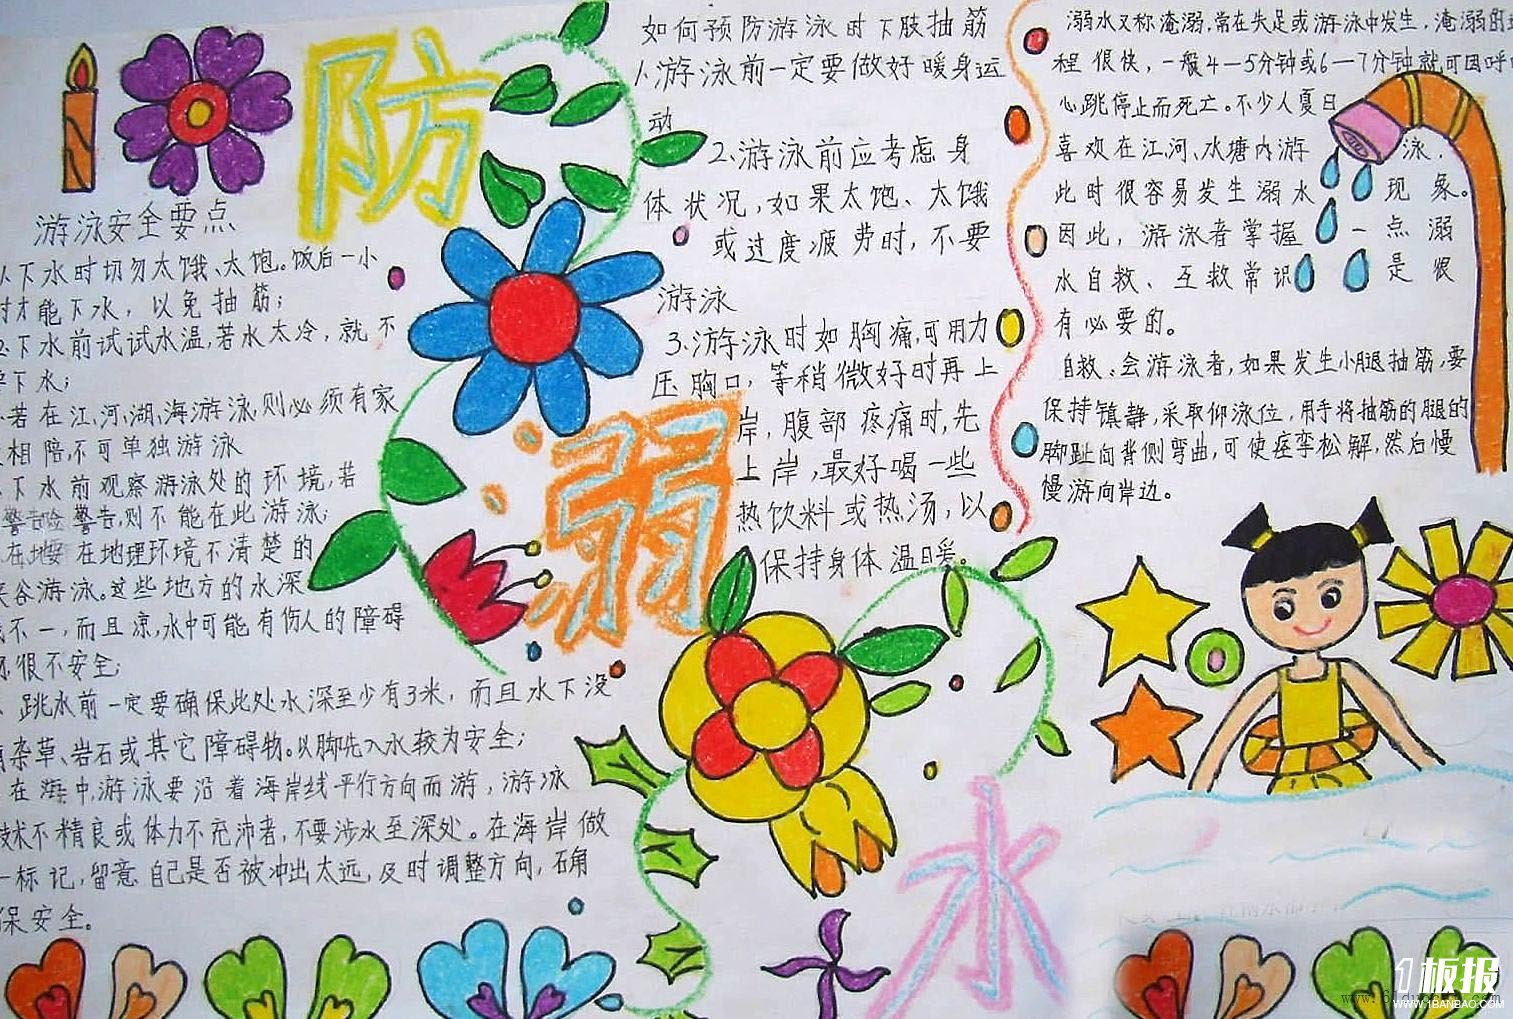 防
溺
水
游泳安全要点
以下水时切勿太饿、太饱。饭后一小
时才能下水，以免抽筋；
下水前试试水温,若水太冷，就不
下水；
若在江、河、湖、海游泳,则必须有家
相陪,不可单独游泳
下水前观察游泳处的环境,若
警告,则不能在此游泳;
在地理环境不清楚的
谷游泳。这些地方的水深
不一，而且凉,水中可能有伤人的障碍
很不安全；
跳水前一定要确保此处水深至少有3米，而且水下没
杂草、岩石或其它障碍物。以脚先入水较为安全；
在海中,游泳要沿着海岸线平行方向而游，游泳
技术不精良或体力不充沛者，不要涉水至深处。在海岸做
一标记,留意自己是否被冲出太远,及时调整方向，确
保安全。
如何预防游泳时下肢抽筋
1、游泳前一定要做好暖身运
动
2、游泳前应考虑身
体状况，如果太饱、太饿
或过度疲劳时，不要
游泳
3、游泳时如胸痛,可用力
压胸口，等稍微好时再上
岸，腹部疼痛时,先
上岸，最好喝一些
热饮料或热汤，以
保持身体温暖。
溺水又称淹溺,常在失足或游泳中发生，淹溺的
程很快，一般4—5分钟或6—7分钟就可因呼
心跳停止而死亡。不少人夏日
喜欢在江、河、水塘内游泳.
此时很容易发生溺水现象。
因此，游泳者掌握一点溺
水自救、互救常识是很
有必要的。
自救：会游泳者，如果发生小腿抽筋，要
保持镇静，采取仰泳位，用手将抽筋的腿的
脚趾向背侧弯曲，可使痉挛松解，然后慢
慢游向岸边。
1板报
WWW.1BANBAO.COM